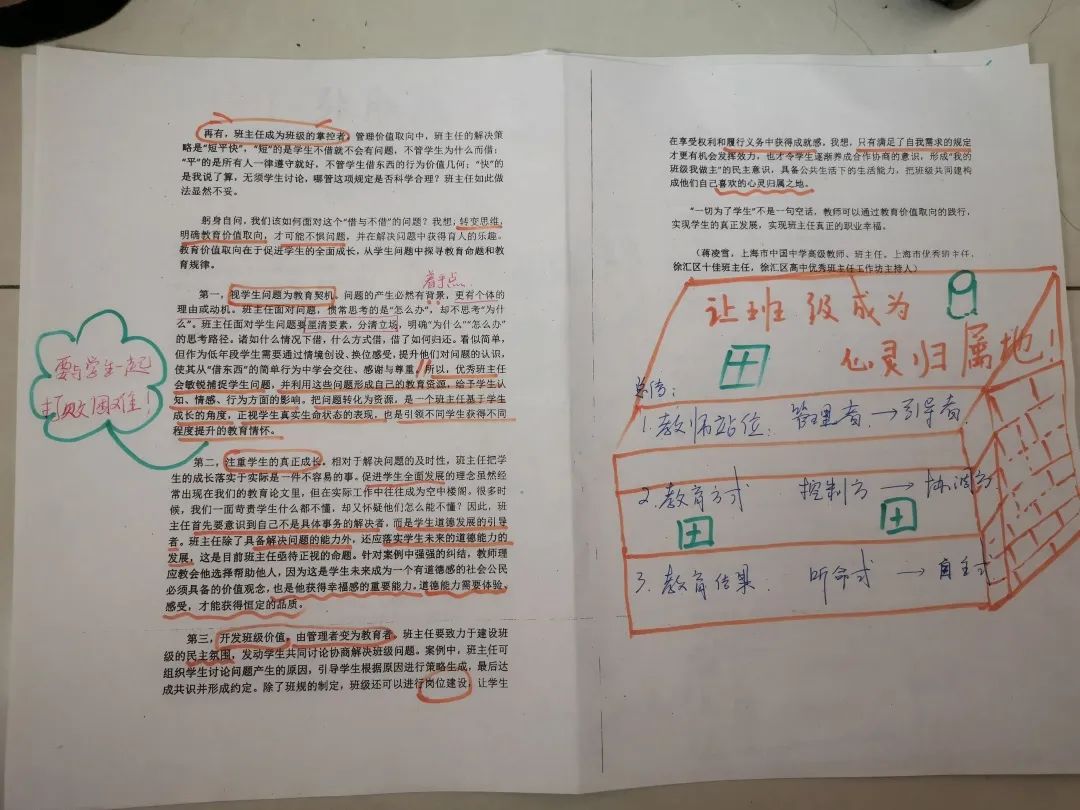 再有，班主任成为班级的掌控者。管理价值取向中，班主任的解决策
略是“短平快”，“短”的是学生不借就不会有问题，不管学生为什么而借；
“平”的是所有人一律遵守就好，不管学生借东西的行为价值几何；“快”的
是我说了算，无须学生讨论，哪管这项规定是否科学合理？班主任如此做
法显然不妥。
躬身自问，我们该如何面对这个“借与不借”的问题？我想，转变思维，
明确教育价值取向，才可能不惧问题，并在解决问题中获得育人的乐趣。
教育价值取向在于促进学生的全面成长，从学生问题中探寻教育命题和教
育规律。
着手点
第一，视学生问题为教育契机。问题的产生必然有背景，更有个体的
理由或动机。班主任面对问题，惯常思考的是“怎么办”，却不思考“为什
么”。班主任面对学生问题要厘清要素，分清立场，明确“为什么”“怎么办”
的思考路径。诸如什么情况下借，什么方式借，借了如何归还。看似简单，
但作为低年段学生需要通过情境创设、换位感受，提升他们对问题的认识，
使其从“借东西”的简单行为中学会交往、感谢与尊重。所以，优秀班主任
会敏锐捕捉学生问题，并利用这些问题形成自己的教育资源，给予学生认
知、情感、行为方面的影响。把问题转化为资源，是一个班主任基于学生
成长的角度，正视学生真实生命状态的表现，也是引领不同学生获得不同
程度提升的教育情怀。
要与学生一起
打败困难！
第二，注重学生的真正成长。相对于解决问题的及时性，班主任把学
生的成长落实于实际是一件不容易的事。促进学生全面发展的理念虽然经
常出现在我们的教育论文里，但在实际工作中往往成为空中楼阁。很多时
候，我们一面苛责学生什么都不懂，却又怀疑他们怎么能不懂？因此，班
主任首先要意识到自己不是具体事务的解决者，而是学生道德发展的引导
者。班主任除了具备解决问题的能力外，还应落实学生未来的道德能力的
发展，这是目前班主任亟待正视的命题。针对案例中强强的纠结，教师理
应教会他选择帮助他人，因为这是学生未来成为一个有道德感的社会公民
必须具备的价值观念，也是他获得幸福感的重要能力。道德能力需要体验、
感受，才能获得恒定的品质。
第三，开发班级价值。由管理者变为教育者。班主任要致力于建设班
级的民主氛围，发动学生共同讨论协商解决班级问题。案例中，班主任可
组织学生讨论问题产生的原因，引导学生根据原因进行策略生成，最后达
成共识并形成约定。除了班规的制定，班级还可以进行岗位建设，让学生
在享受权利和履行义务中获得成就感。我想，只有满足了自我需求的规定
才更有机会发挥效力，也才令学生逐渐养成合作协商的意识，形成“我的
班级我做主”的民主意识，具备公共生活下的生活能力，把班级共同建构
成他们自己喜欢的心灵归属之地。
“一切为了学生”不是一句空话，教师可以通过教育价值取向的践行，
实现学生的真正发展，实现班主任真正的职业幸福。
（蒋凌雪，上海市中国中学高级教师、班主任，上海市优秀班主任，
徐汇区十佳班主任，徐汇区高中优秀班主任工作坊主持人）
让班级成为
心灵归属地！
总结：
1.教师站位：管理者→引导者
2.教育方式 控制方→协调方
3.教育结果 听命式→自主式